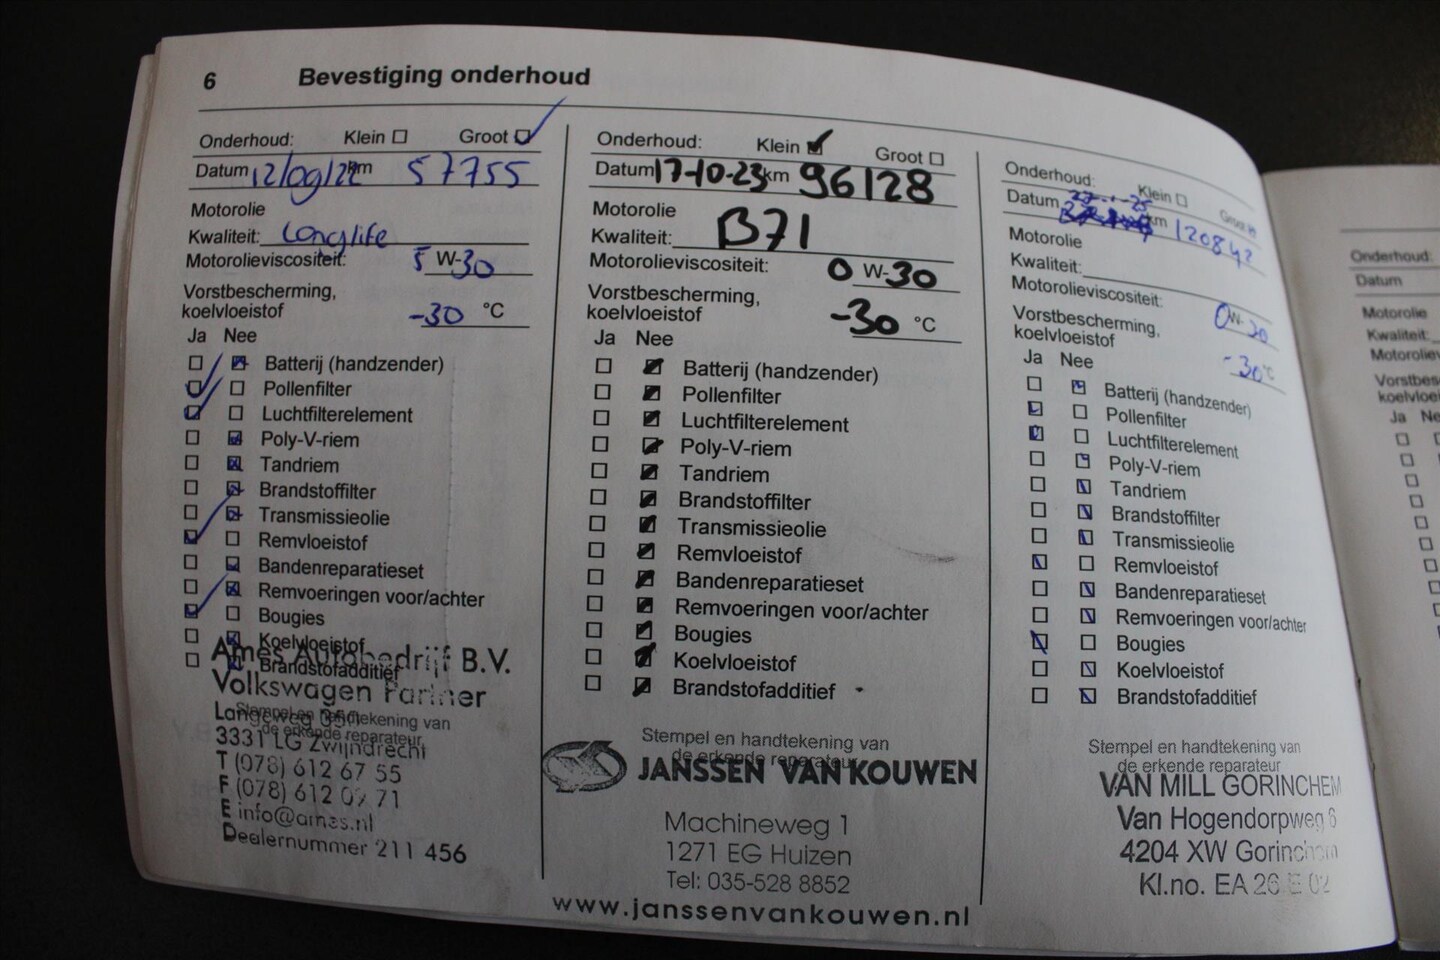 6 Bevestiging onderhoud
Onderhoud: Klein Groot
Datum 12/09/22 km 57755
Motorolie
Kwaliteit: Longlife
Motorolieviscositeit: 5 W-30
Vorstbescherming,
koelvloeistof -30 °C
Ja Nee
Batterij (handzender)
Pollenfilter
Luchtfilterelement
Poly-V-riem
Tandriem
Brandstoffilter
Transmissieolie
Remvloeistof
Bandenreparatieset
Remvoeringen voor/achter
Bougies
Koelvloeistof
Brandstofadditief
Ames Autobedrijf B.V.
Volkswagen Partner
Stempel en handtekening van
de erkende reparateur
Langeweg
3331 LG Zwijndrecht
T (078) 612 67 55
F (078) 612 09 71
E info@ames.nl
Dealernummer 211 456
Onderhoud: Klein Groot
Datum 17-10-23 km 96128
Motorolie
Kwaliteit: B71
Motorolieviscositeit: 0 W-30
Vorstbescherming,
koelvloeistof -30 °C
Ja Nee
Batterij (handzender)
Pollenfilter
Luchtfilterelement
Poly-V-riem
Tandriem
Brandstoffilter
Transmissieolie
Remvloeistof
Bandenreparatieset
Remvoeringen voor/achter
Bougies
Koelvloeistof
Brandstofadditief
Stempel en handtekening van
de erkende reparateur
JANSSEN VAN KOUWEN
Machineweg 1
1271 EG Huizen
Tel: 035-528 8852
www.janssenvankouwen.nl
Onderhoud: Klein Groot
Datum km 120842
Motorolie
Kwaliteit:
Motorolieviscositeit: 0 W-30
Vorstbescherming,
koelvloeistof -30 °C
Ja Nee
Batterij (handzender)
Pollenfilter
Luchtfilterelement
Poly-V-riem
Tandriem
Brandstoffilter
Transmissieolie
Remvloeistof
Bandenreparatieset
Remvoeringen voor/achter
Bougies
Koelvloeistof
Brandstofadditief
Stempel en handtekening van
de erkende reparateur
VAN MILL GORINCHEM
Van Hogendorpweg 6
4204 XW Gorinchem
Kl.no. EA 26 E 02
Onderhoud:
Datum
Motorolie
Kwaliteit:
Ja